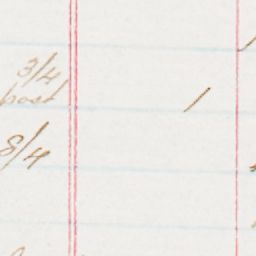 3/4
post /
8/4